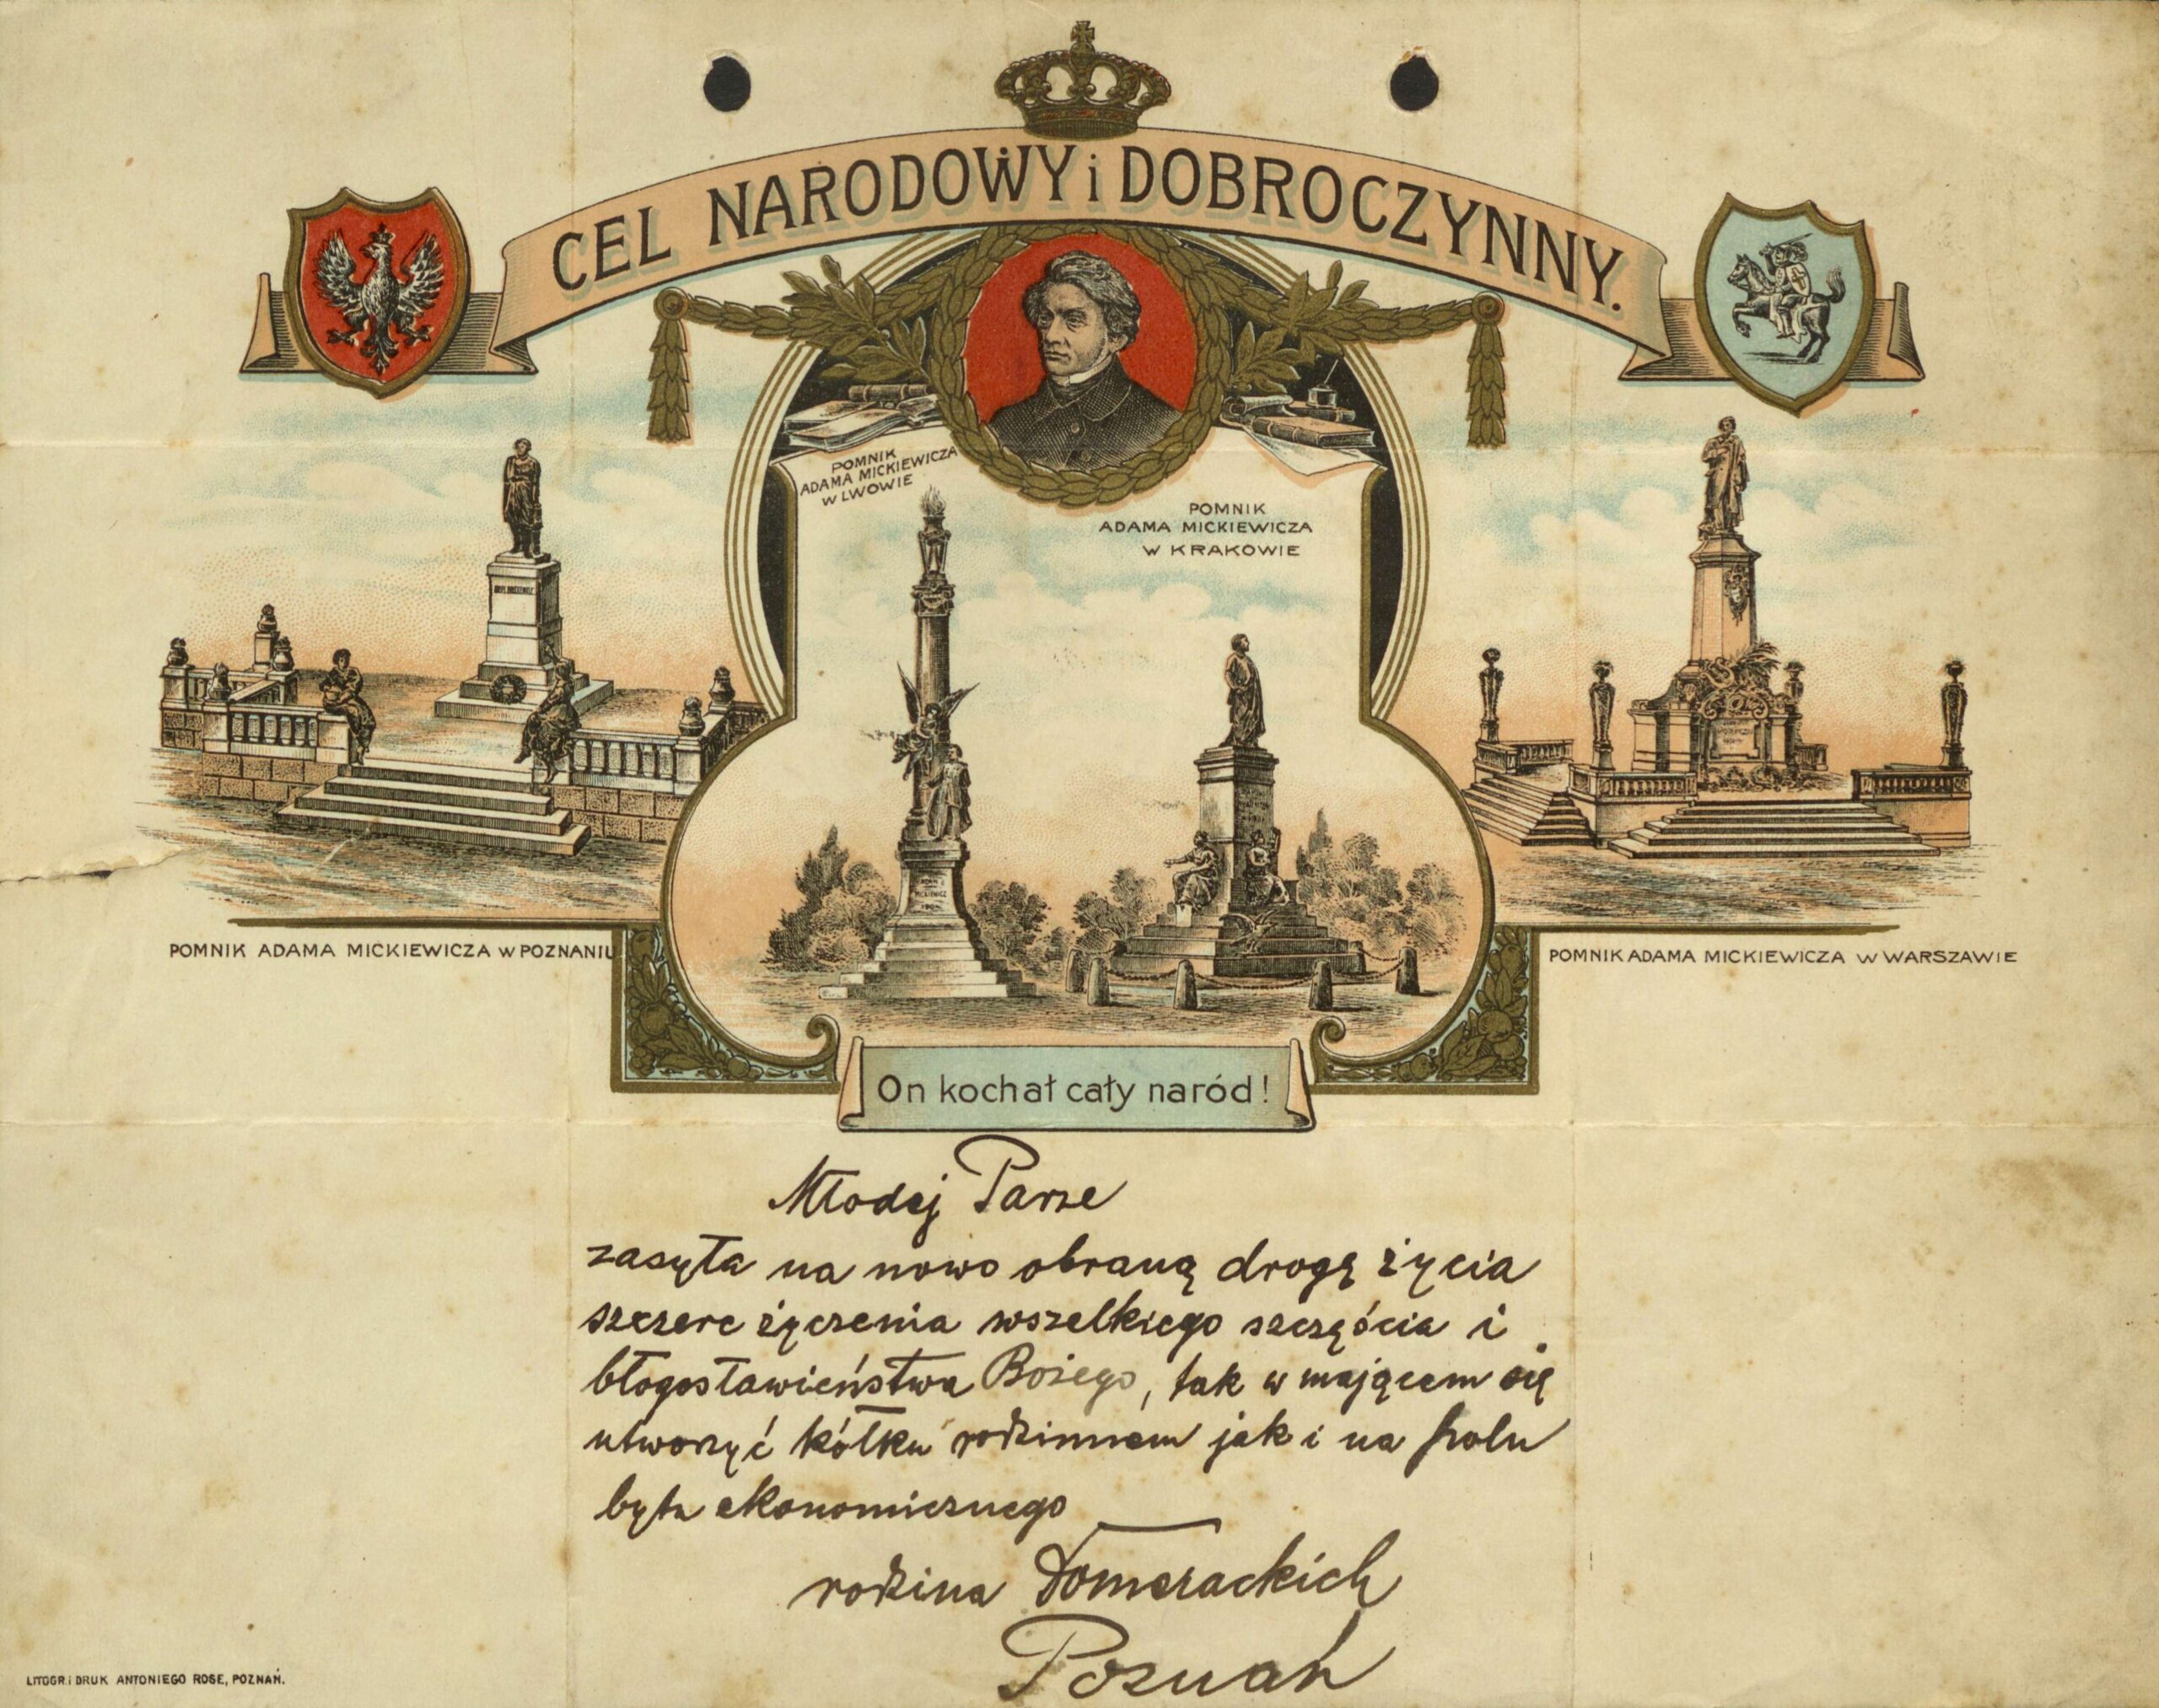 CEL NARODOWY i DOBROCZYNNY.
POMNIK
ADAMA MICKIEWICZA
W LWOWIE
POMNIK
ADAMA MICKIEWICZA
W KRAKOWIE
POMNIK ADAMA MICKIEWICZA W POZNANIU
POMNIK ADAMA MICKIEWICZA W WARSZAWIE
On kochał cały naród!
Młodej Parze
zasyła na nowo obraną drogę życia
szczere życzenia wszelkiego szczęścia i
błogosławieństwa Bożego, tak w mającem się
utworzyć kółku rodzinnem jak i na polu
bytu ekonomicznego
rodzina
Poznań
LITOGR. i DRUK ANTONIEGO ROSE, POZNAŃ.